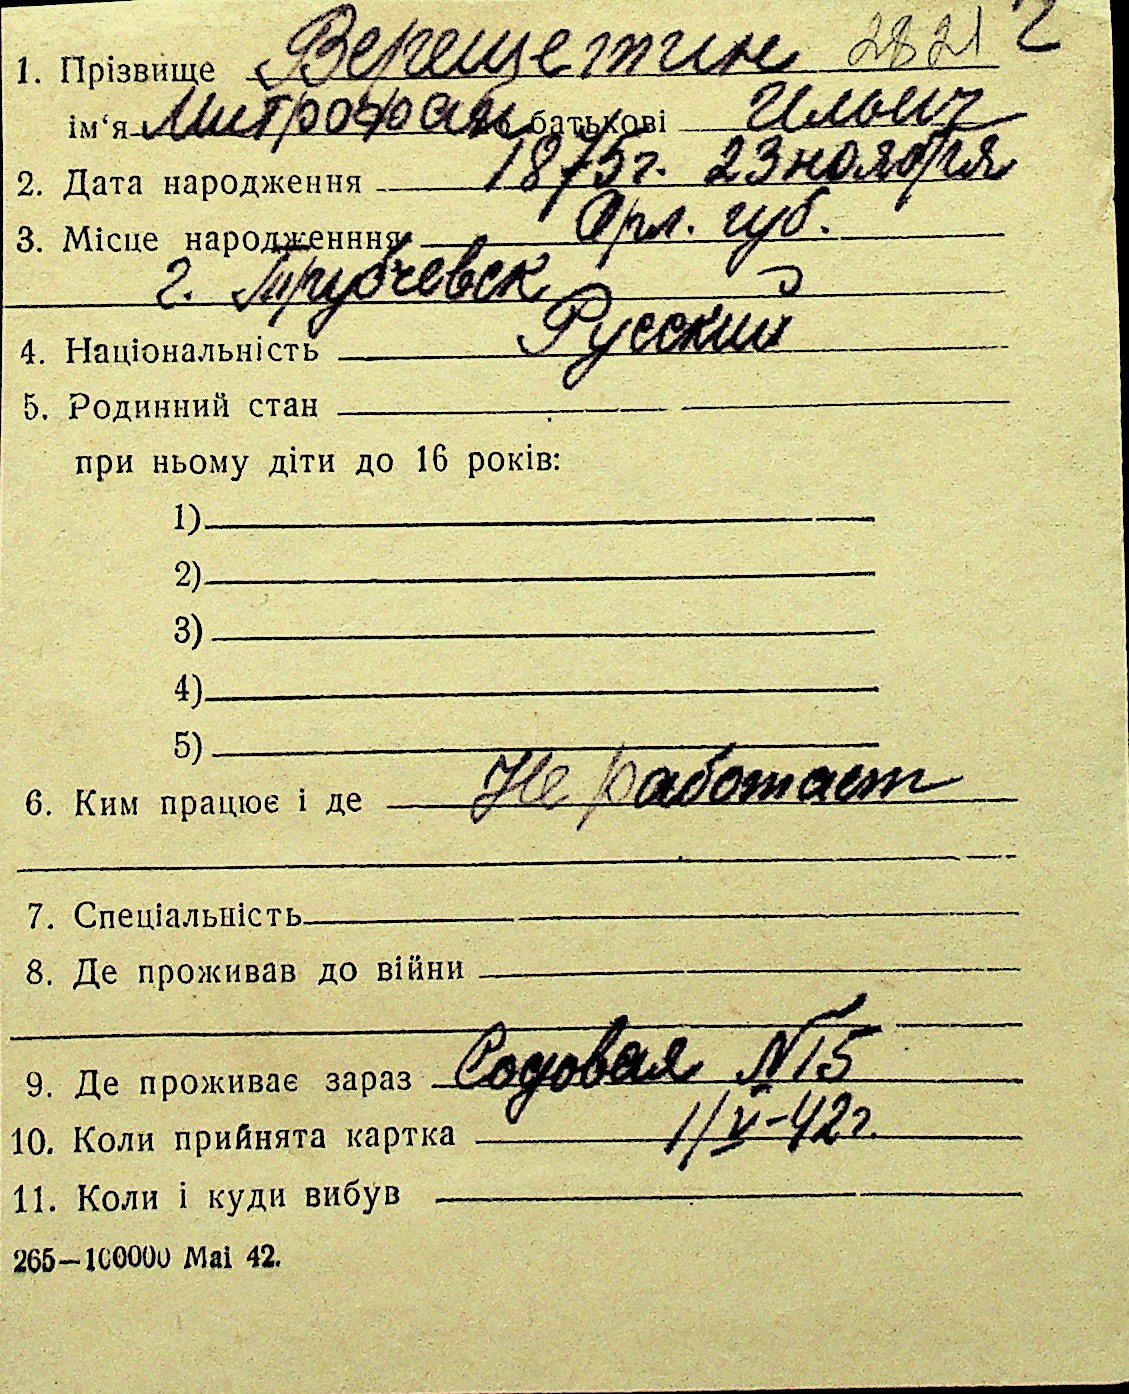 1. Прізвище Верещетин 2821 2
ім‘я Митрофан по батькові Ильич
2. Дата народження 1875г. 23 ноября
3. Місце народженння Орл. губ.
г. Трубчевск
4. Національність Русский
5. Родинний стан
при ньому діти до 16 років:
1)
2)
3)
4)
5)
6. Ким працює і де Не работает
7. Спеціальність
8. Де проживав до війни
9. Де проживає зараз Садовая №15
10. Коли прийнята картка 1/V-42г.
11. Коли і куди вибув
265—100000 Mai 42.